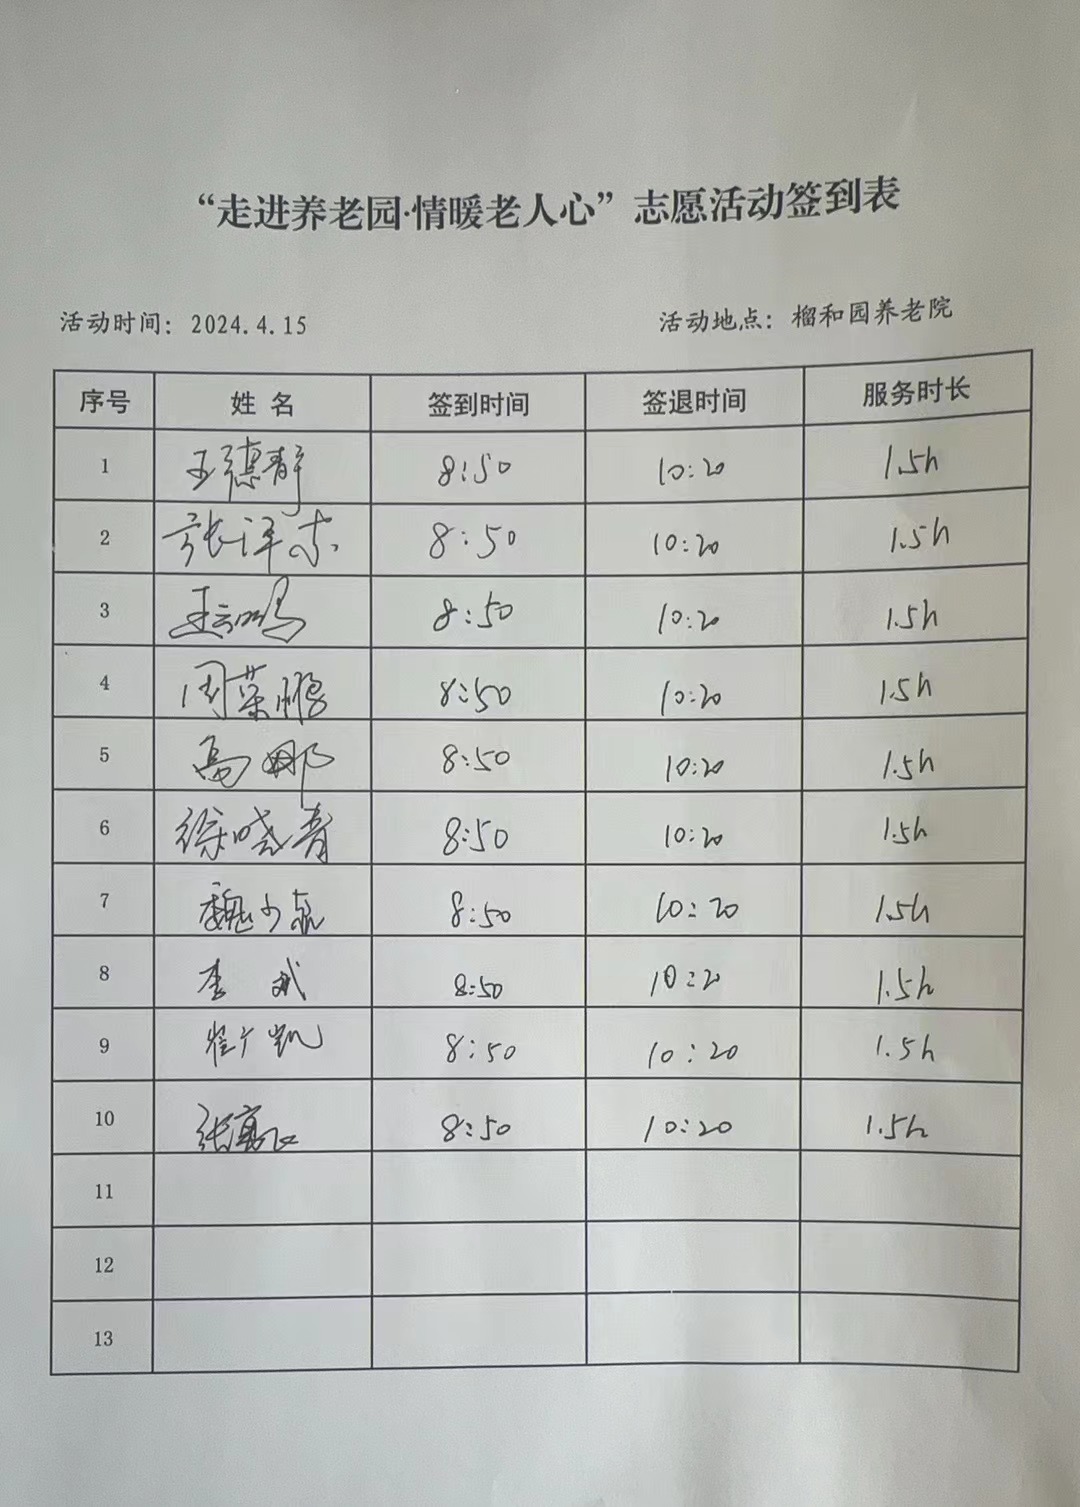 “走进养老园·情暖老人心”志愿活动签到表
活动时间：2024.4.15 活动地点：榴和园养老院
序号 姓 名 签到时间 签退时间 服务时长
1 王德静 8:50 10:20 1.5h
2 张洋 8:50 10:20 1.5h
3 8:50 10:20 1.5h
4 周荣鹏 8:50 10:20 1.5h
5 高娜 8:50 10:20 1.5h
6 徐晓青 8:50 10:20 1.5h
7 魏少泉 8:50 10:20 1.5h
8 李斌 8:50 10:20 1.5h
9 崔广凯 8:50 10:20 1.5h
10 张 8:50 10:20 1.5h
11
12
13